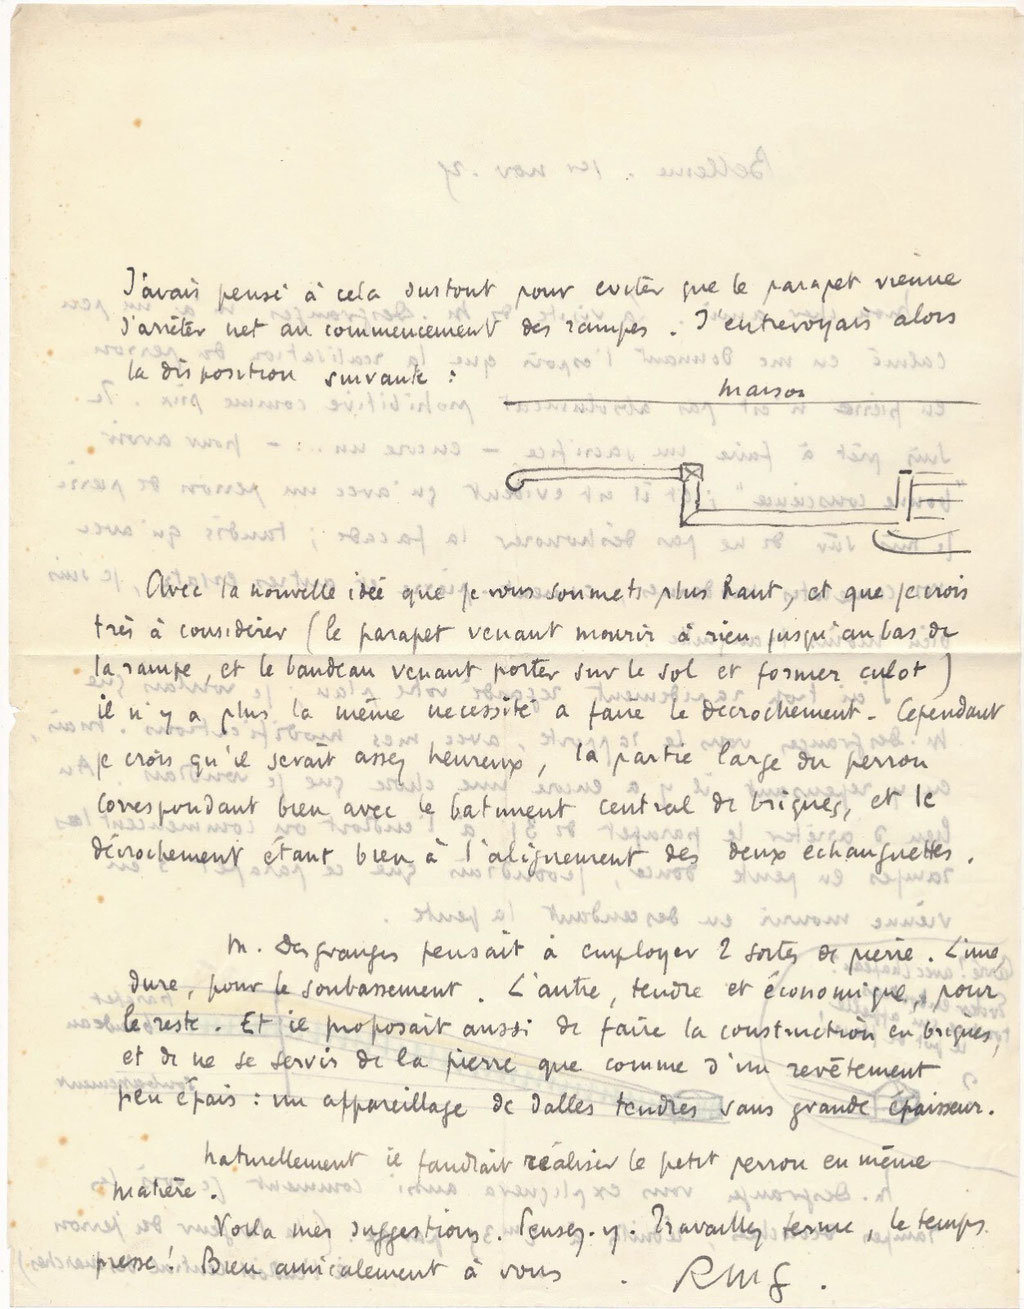 J'avais pensé à cela surtout pour eviter que le parapet vienne
s'arrêter net au commencement des rampes. J'entrevoyais alors
la disposition suivante :
maison
Avec la nouvelle idée que je vous soumets plus haut, et que je crois
très à considérer (le parapet venant mourir à rien jusqu'au bas de
la rampe, et le bandeau venant porter sur le sol et former culot)
il n'y a plus la même necessité a faire le decrochement. Cependant
je crois qu'il serait assez heureux, la partie large du perron
correspondant bien avec le batiment central de briques, et le
décrochement étant bien à l'alignement des deux echauguettes.
M. Desgranges pensait à employer 2 sortes de pierre. L'une
dure, pour le soubassement. L'autre, tendre et économique, pour
le reste. Et il proposait aussi de faire la construction en briques,
et de ne se servir de la pierre que comme d'un revêtement
peu épais : un appareillage de dalles tendres sans grande épaisseur.
Naturellement il faudrait réaliser le petit perron en même
matière.
Voila mes suggestions. Pensez-y. Travaillez ferme, le temps
presse ! Bien amicalement à vous.
RMG.